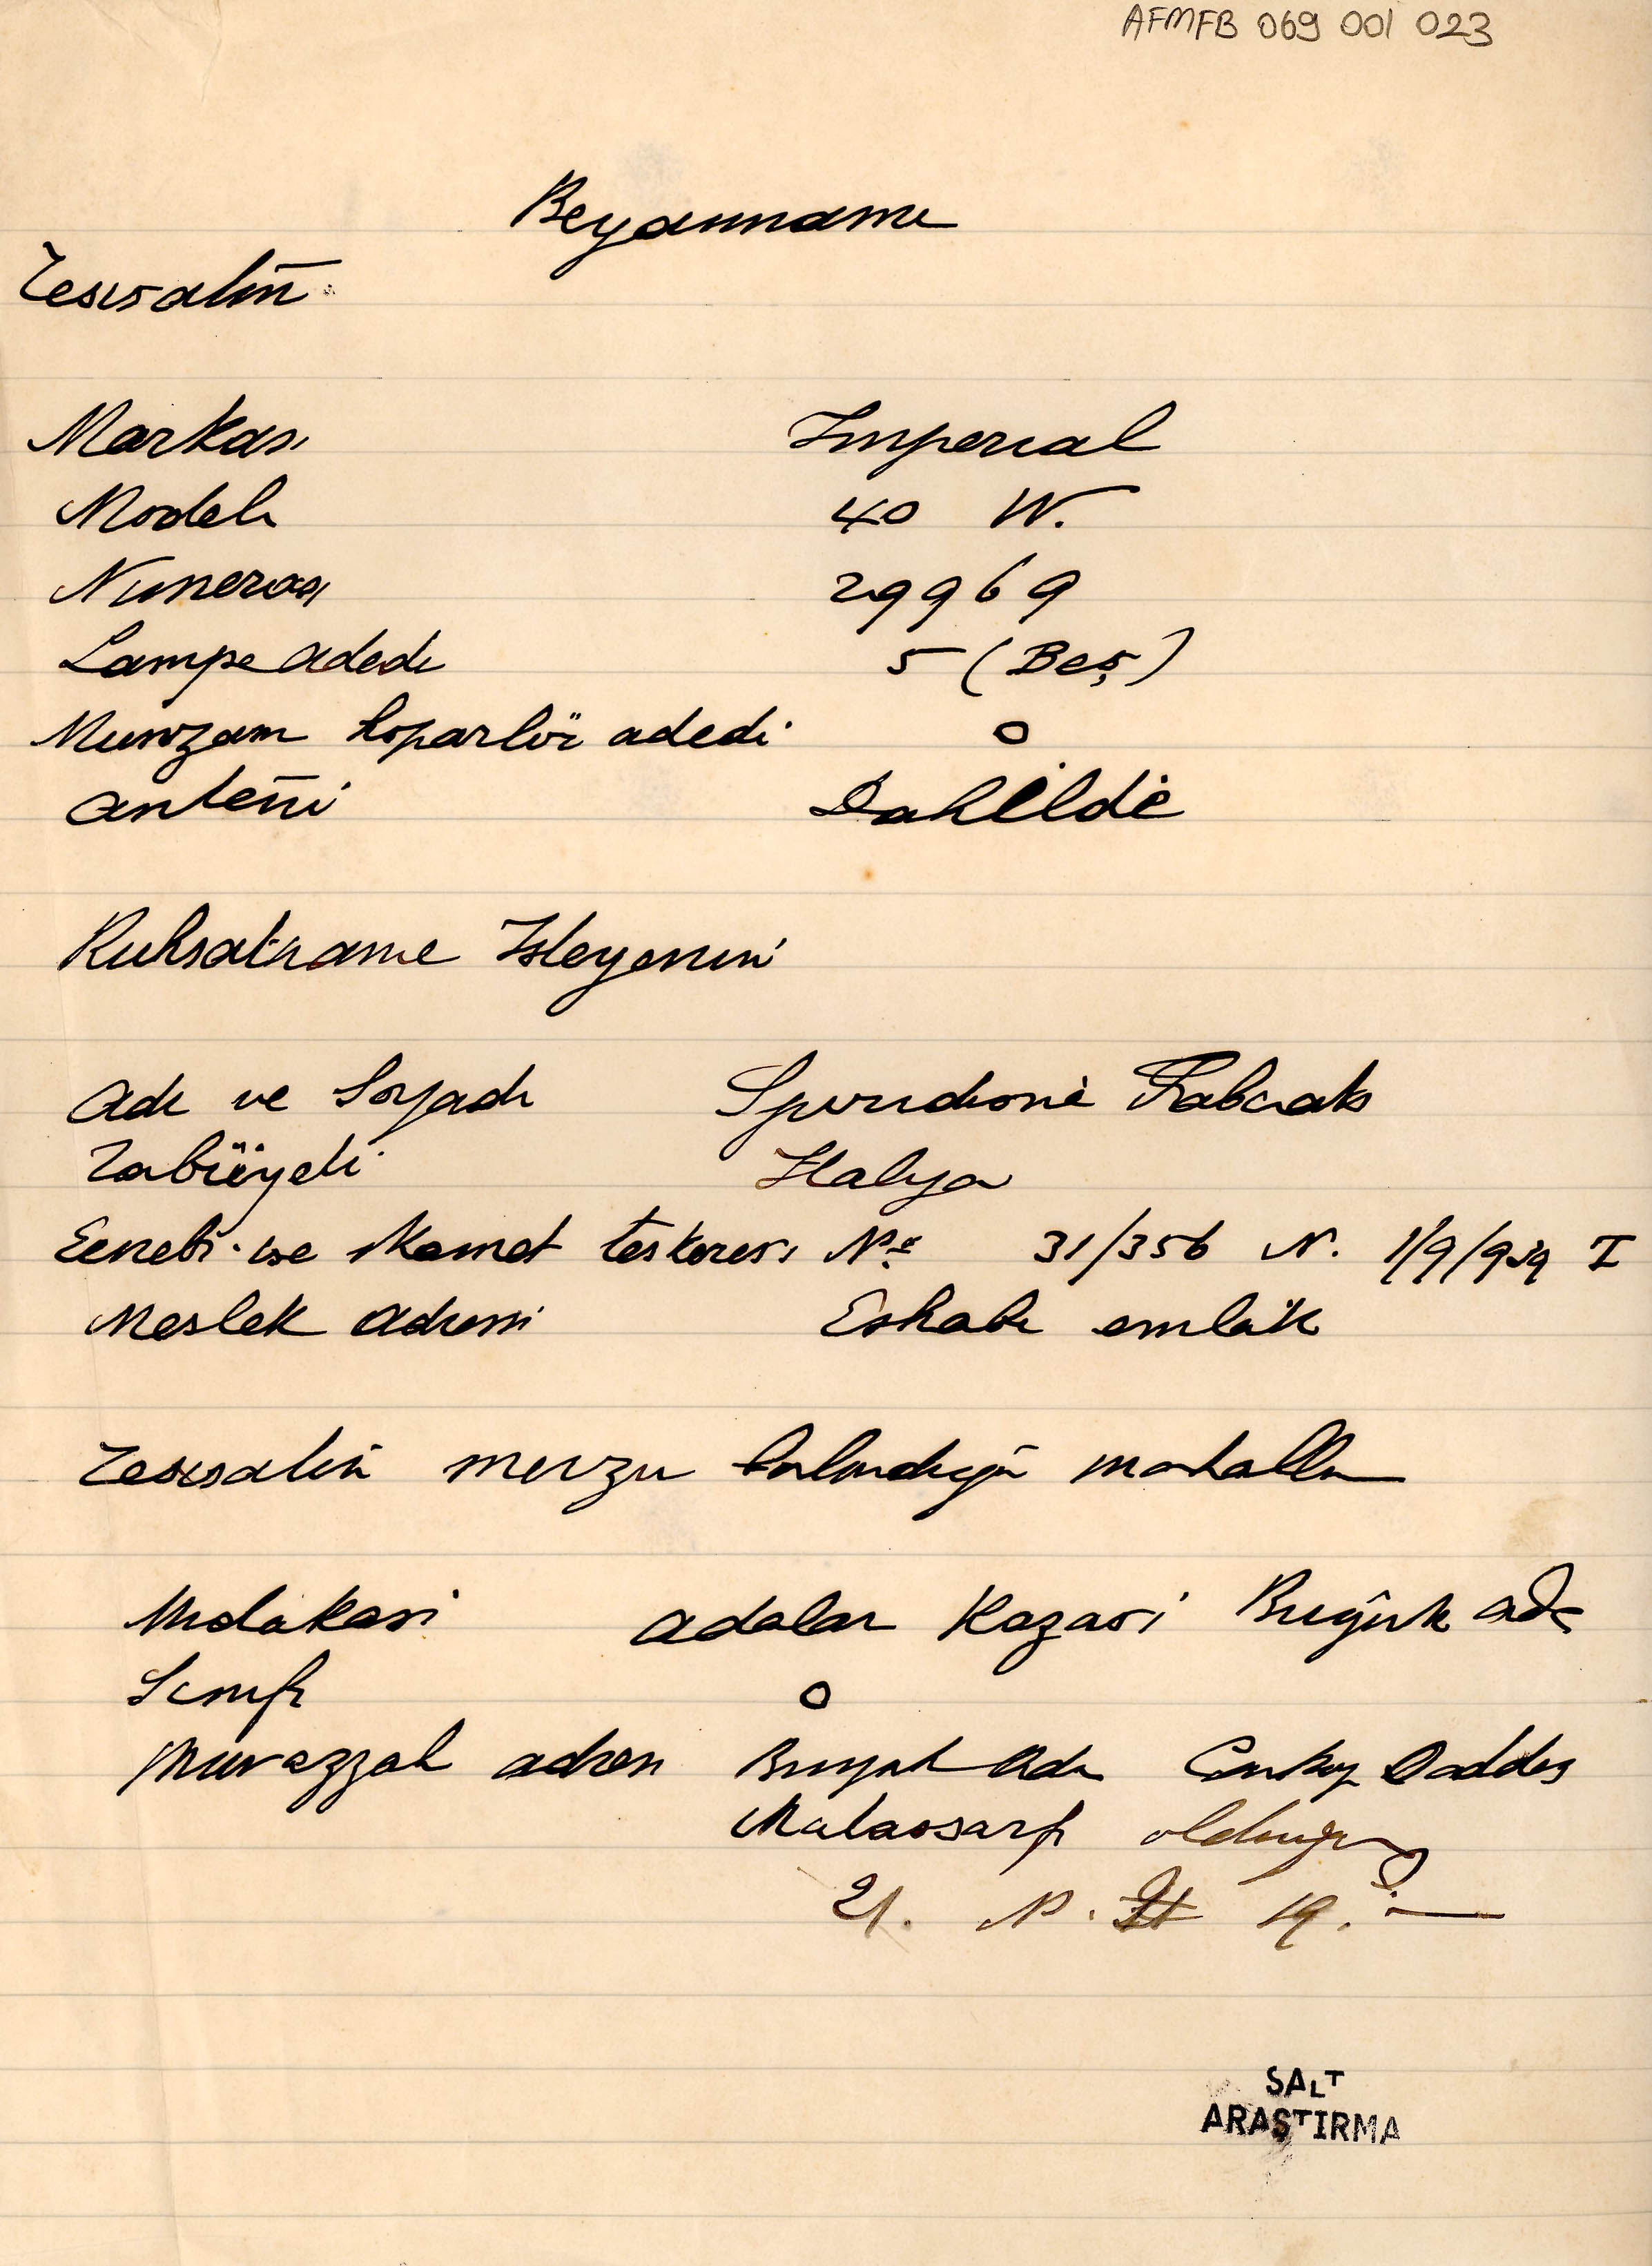 AFMFB 069 001 023
Beyanname
Tesisatın
Markası Imperial
Modeli 40 W.
Numerası 29969
Lampe adedi 5 (Beş)
Munzam hoparlör adedi 0
anteni Dahilde
Ruhsatname Isteyenin
Adı ve Soyadı
Tabiiyeti Italya
Ecnebi ise ikamet teskeresi No 31/356 N. 1/9/939 I
Meslek adresi Eshabı emlâk
Tesisatın mevzu bulunduğu mahallin
Mıntakası adalar Kazasi Buyuk ada
Sınıfı 0
Muvazzah adresi Buyuk Ada Caddesi
21. N. 19.
SALT
ARAŞTIRMA